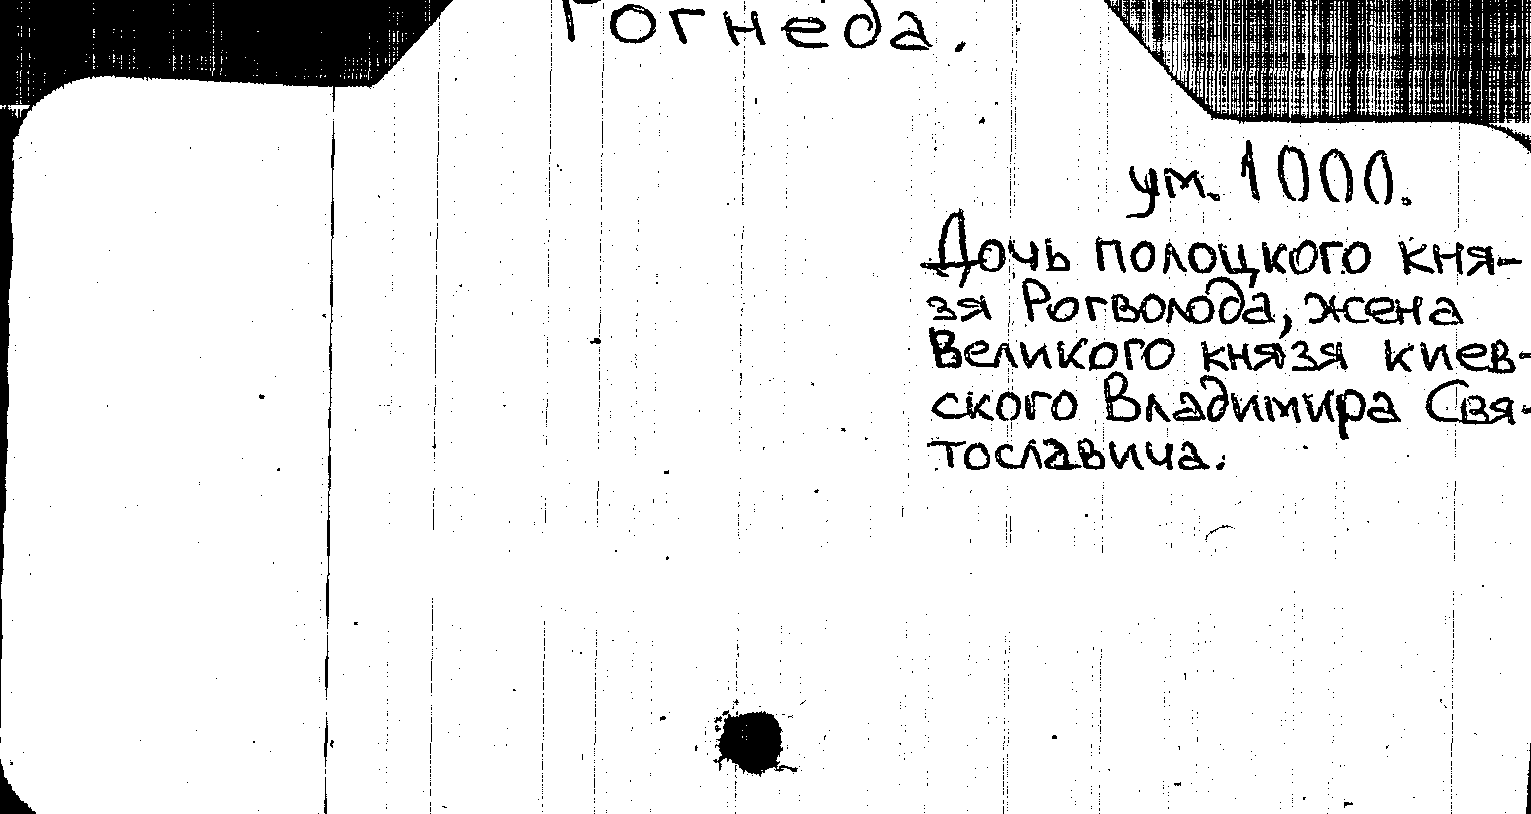 Рогнеда.
ум. 1000.
Дочь полоцкого кня-
зя Рогволода, жена
Великого князя киев-
ского Владимира Свя-
тославича.